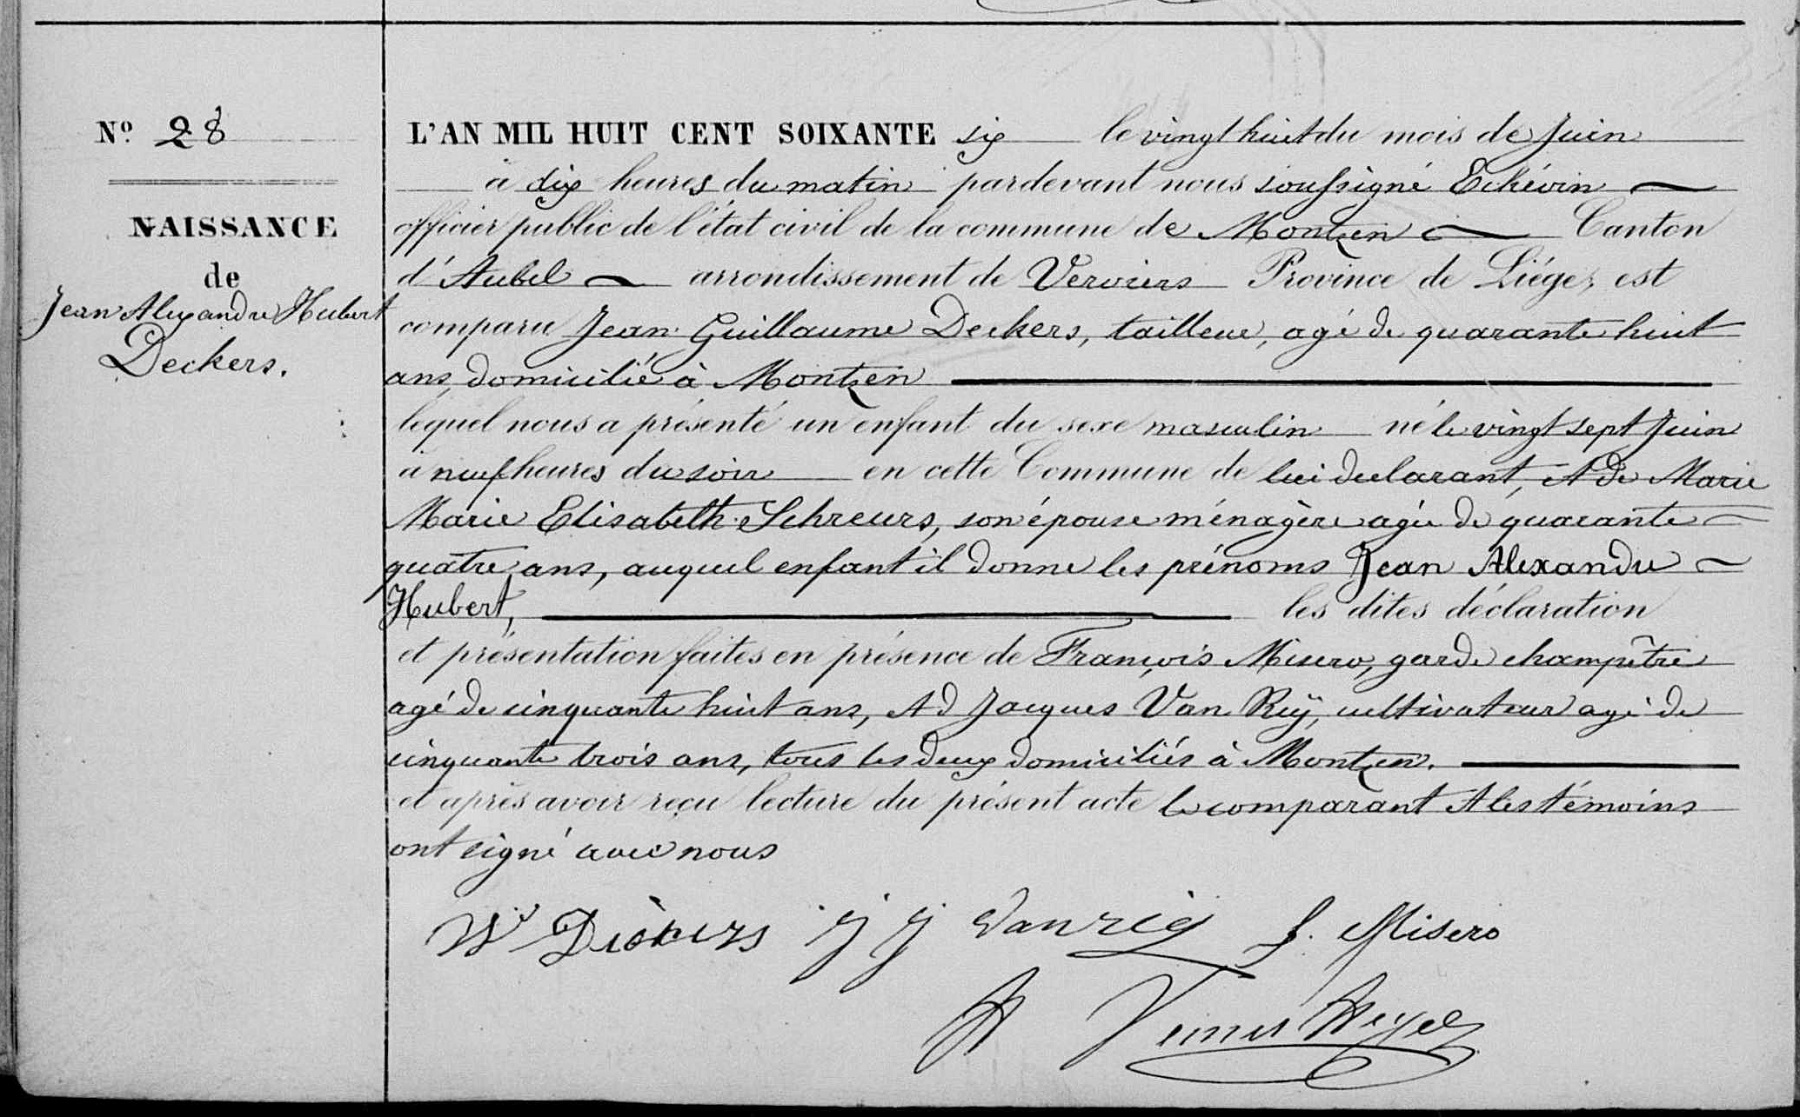 Nº 28
NAISSANCE
de
Jean Alexandre Hubert
Deckers.
L'AN MIL HUIT CENT SOIXANTE six le vingt huit du mois de Juin
à dix heures du matin pardevant nous soussigné Echévin
officier public de l'état civil de la commune de Montzen Canton
d'Aubel arrondissement de Verviers Province de Liége, est
comparu Jean Guillaume Deckers, tailleur, agé de quarante huit
ans, domicilié à Montzen
lequel nous a présenté un enfant du sexe masculin né le vingt sept Juin
à neuf heures du soir en cette Commune de lui déclarant, & de Marie
Marie Elisabeth Schreurs, son épouse ménagère agée de quarante
quatre ans, auquel enfant il donne les prénoms Jean Alexandre
Hubert, les dites déclaration
et présentation faites en présence de François Misero, garde champêtre
agé de cinquante huit ans, & d Jacques Van Rÿ, cultivateur agé de
cinquante trois ans, tous les deux domiciliés à Montzen.
et après avoir reçu lecture du présent acte le comparant & les témoins
ont signé avec nous
W Dickers J J Vanrig f. Misero